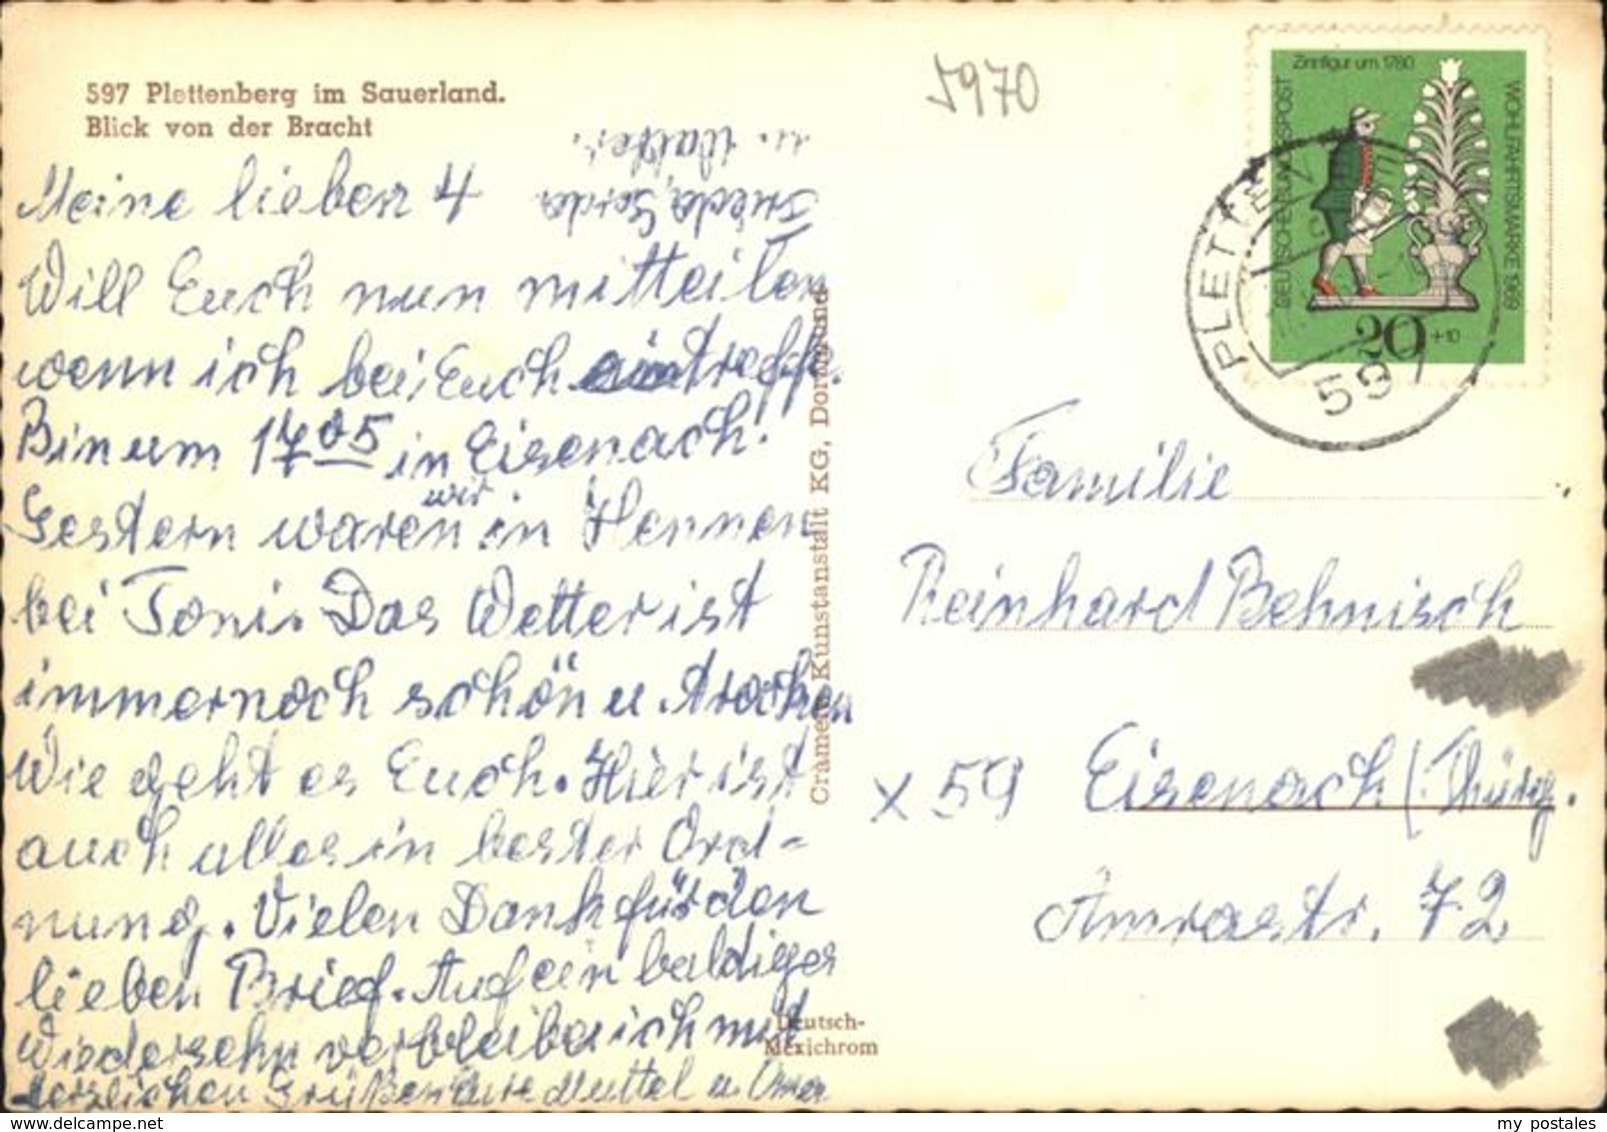 597 Plettenberg im Sauerland.
Blick von der Bracht
Meine lieben 4
Will Euch nun mitteilen
wenn ich bei Euch eintreffe.
Bin um 17 05 in Eisenach!
Gestern waren wir in Hennen
bei Toni. Das Wetter ist
immernoch schön u. trocken
Wie geht es Euch. Hier ist
auch alles in bester Ord-
nung. Vielen Dank für den
lieben Brief. Auf ein baldiges
Wiedersehn verbleibe ich mit
herzlichen Grüßen Eure Muttel u. Oma
Gerda
u. Walter.
Cramers Kunstanstalt KG, Dortmund
Deutsch-
Mexichrom
5970
Zinnfigur um 1780
DEUTSCHE BUNDESPOST
WOHLFAHRTSMARKE 1969
20 +10
PLETTENB
597
Familie
Reinhard Behnisch
x 59 Eisenach (Thürg.
Amrastr. 72
my postales